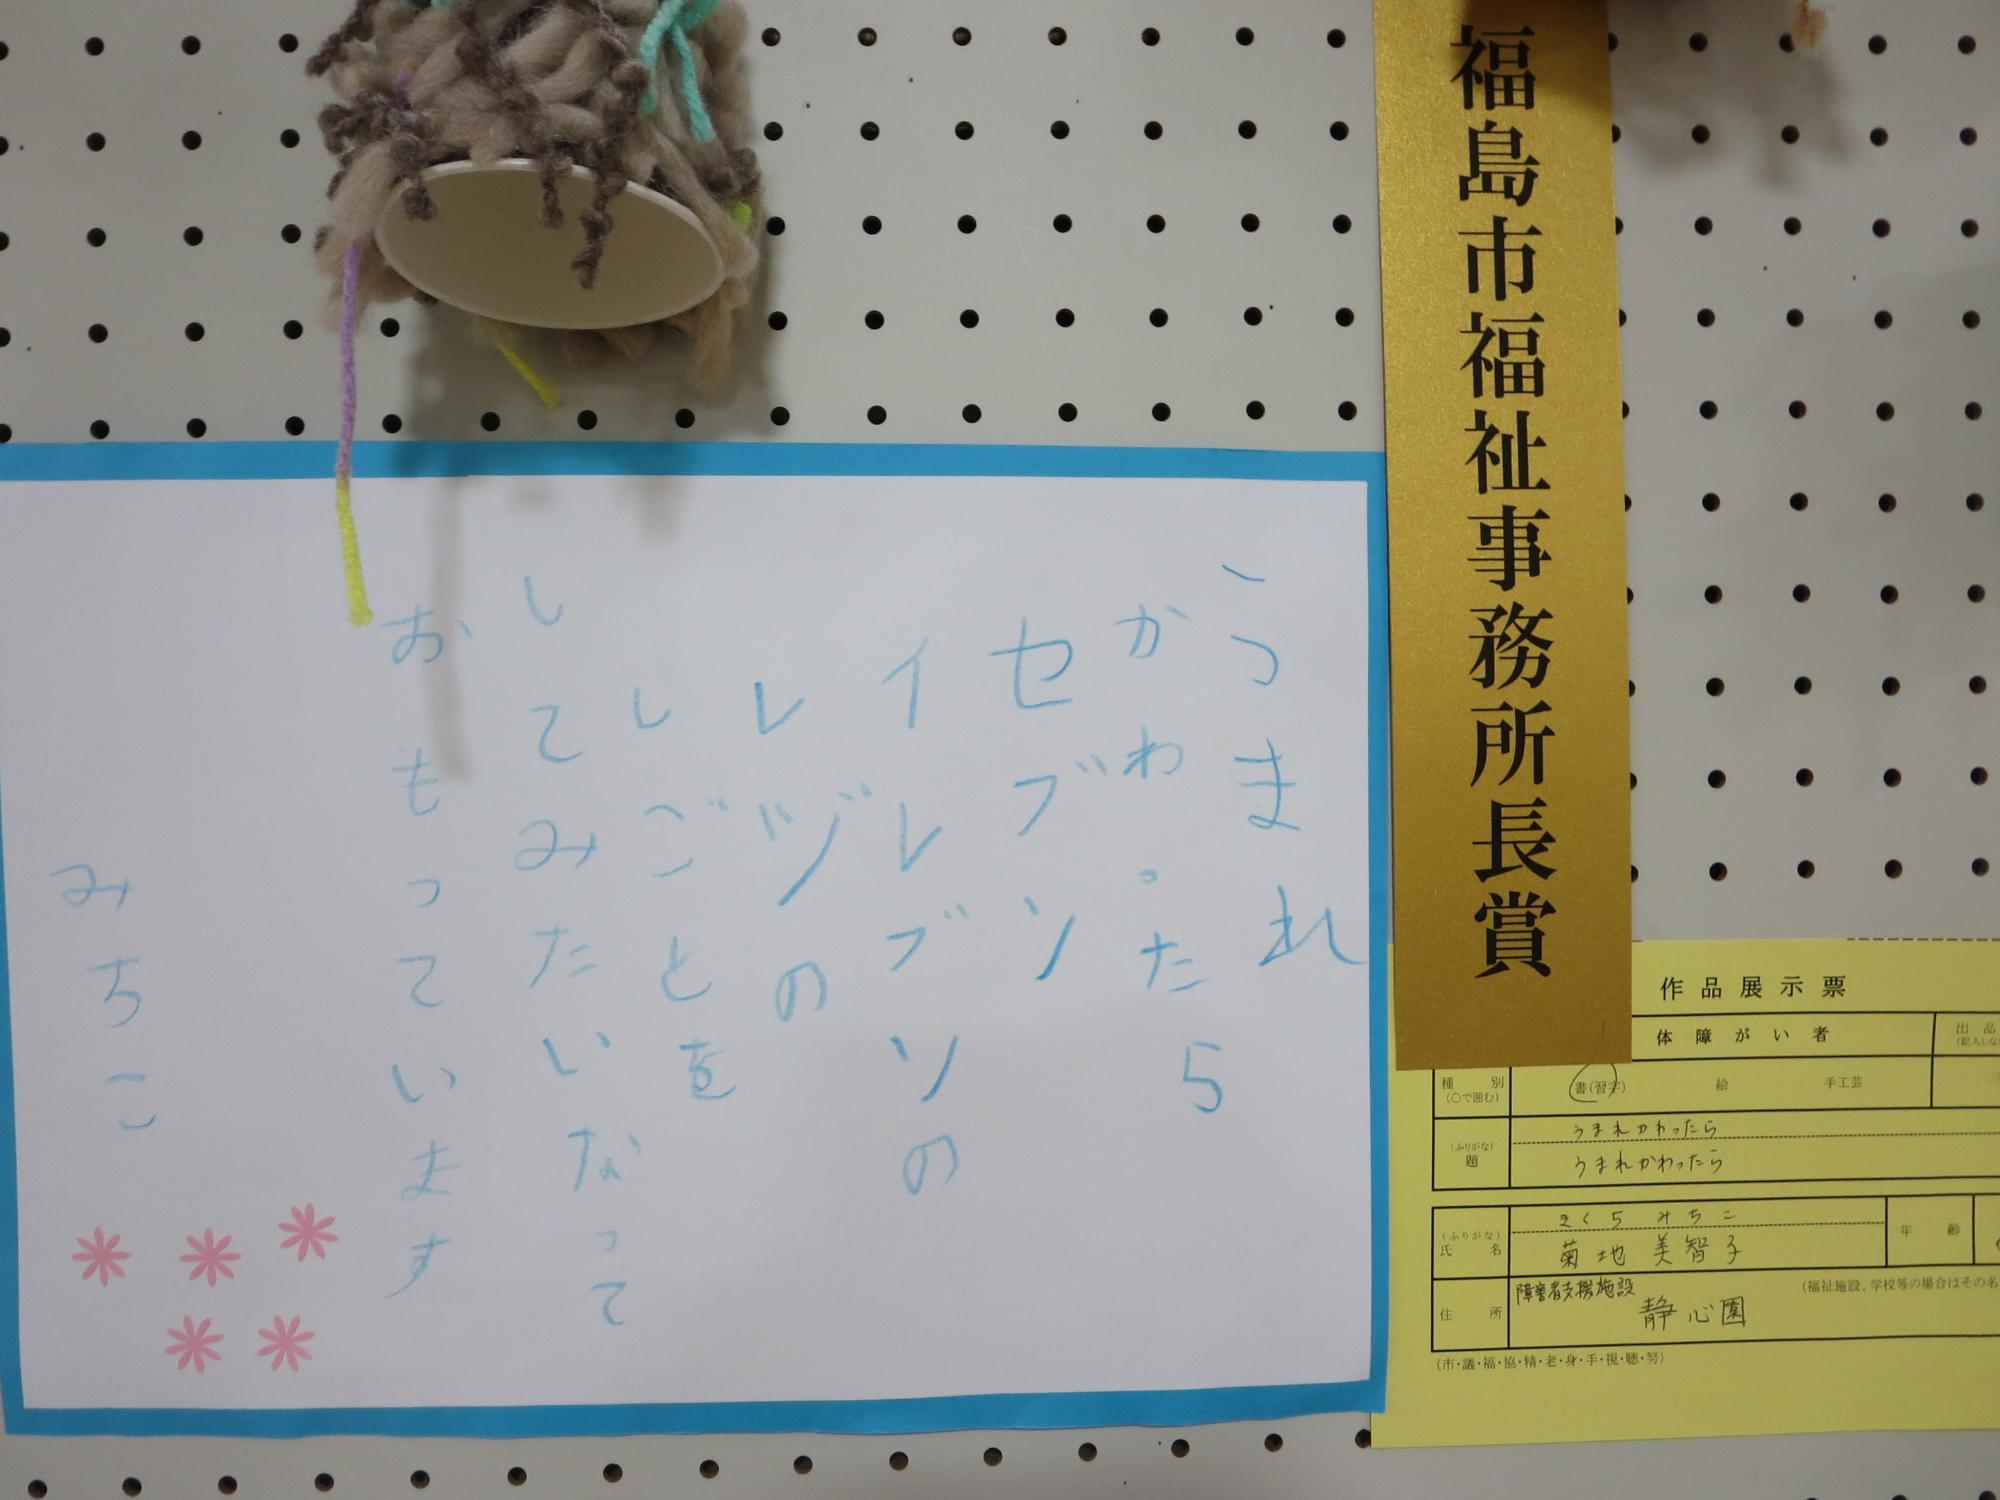 福島市福祉事務所長賞
うまれ
かわったら
セブン
イレブンの
レジの
しごとを
してみたいなって
おもっています
みちこ
作品展示票
体障がい者
出品
種別
(○で囲む)
書(習字)
絵
手工芸
(ふりがな)
題
うまれかわったら
うまれかわったら
(ふりがな)
氏名
きくち みちこ
菊地 美智子
年齢
住所
障害者支援施設
静心園
(福祉施設、学校等の場合はその名
(市・議・福・協・精・老・身・手・視・聴・努)